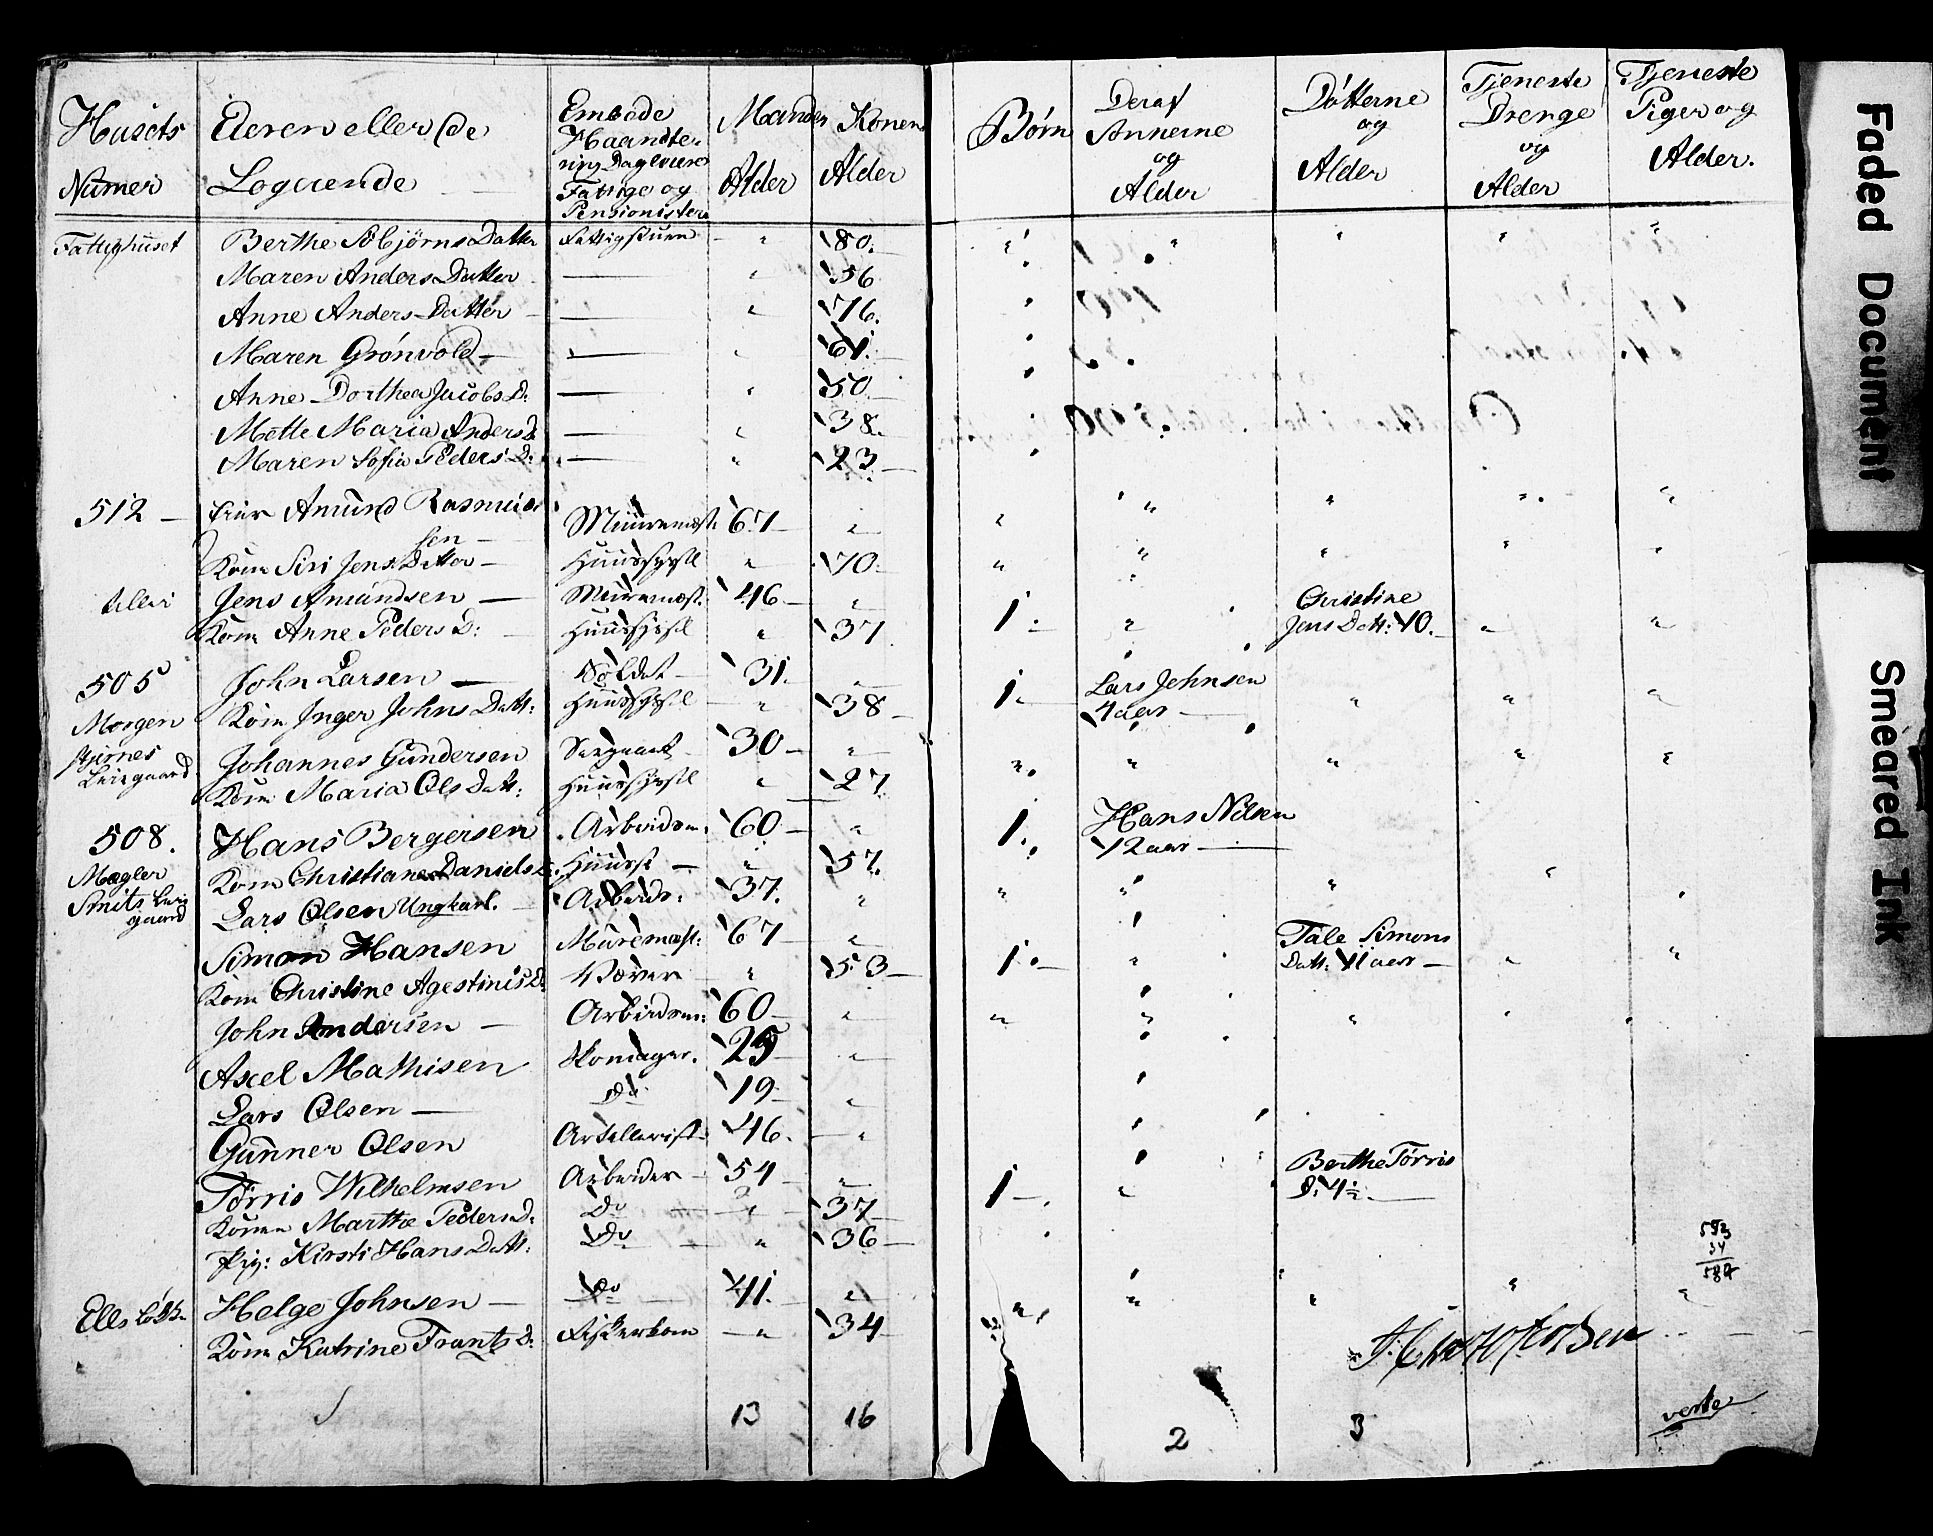 Husets Numer | Eieren eller de Logerende | Embede Haandte- ring Dagleiere Fattige og Pensionister | Mandens Alder | Konens Alder | Børn | Deraf Sønnerne og Alder | Døtterne og Alder | Tjeneste Drenge og Alder | Tjeneste Piger og Alder.
Fattighuset Berthe Asbjørns Datter Fattigstuen " 80. " " " " "
Maren Anders Datter — " 56
Anne Anders Datter — " 76.
Maren Grønvold — — " 61.
Anne Dorthea Jacobs D: — " 50
Mette Maria Anders D — " 38
Maren Sofia Peders D: — " 23
512 — Amund Rasmus
sen — Muurmest. 67 "
Kone Siri Jens Datter — " 70.
Jens Amundsen — Muurmest: 46 — " 1. " Christine
Kone Anne Peders D: " 37 Jens Datt: 10.
505 John Larsen — Soldat 31. 1. Lars Johnsen
Morgen Kone Inger Johns Datt: " 38 — 4 aar —
Johannes Gundersen Sergeant 30 — "
Kone Maria Ols Datt: " 27.
508. Hans Bergersen Arbeidsm. 60 — " 1. Hans Nilsen
Mægler Kone Christiane Daniels D. Huusf — " 57. 12 aar —
Smits Leie
gaard Lars Olsen Ungkarl. Arbeids: 37. "
Simon Hansen Muremest: 67 " 1. — " Tale Simons
Kone Christine Agestinis D. " 53 — Datt: 11 aar —
John Andersen — Arbeidsm: 60 "
Axel Mathisen Skomager. 25 "
Lars Olsen — Do 19 "
Gunner Olsen Artillerist 46. "
Tørris Wilhelmsen Arbeider — 54 " 1 — " Berthe Tørris
Konen Marthe Peders D: Do " 37 D: 4 —
Pig: Kirsti Hans Datt: Do " 36 —
553
34
587
Helge Johnsen — Do 41. "
Kone Katrine Frants D: Fiskerkone — " 34
13 16 2 3
verte
Faded Document
Smeared Ink